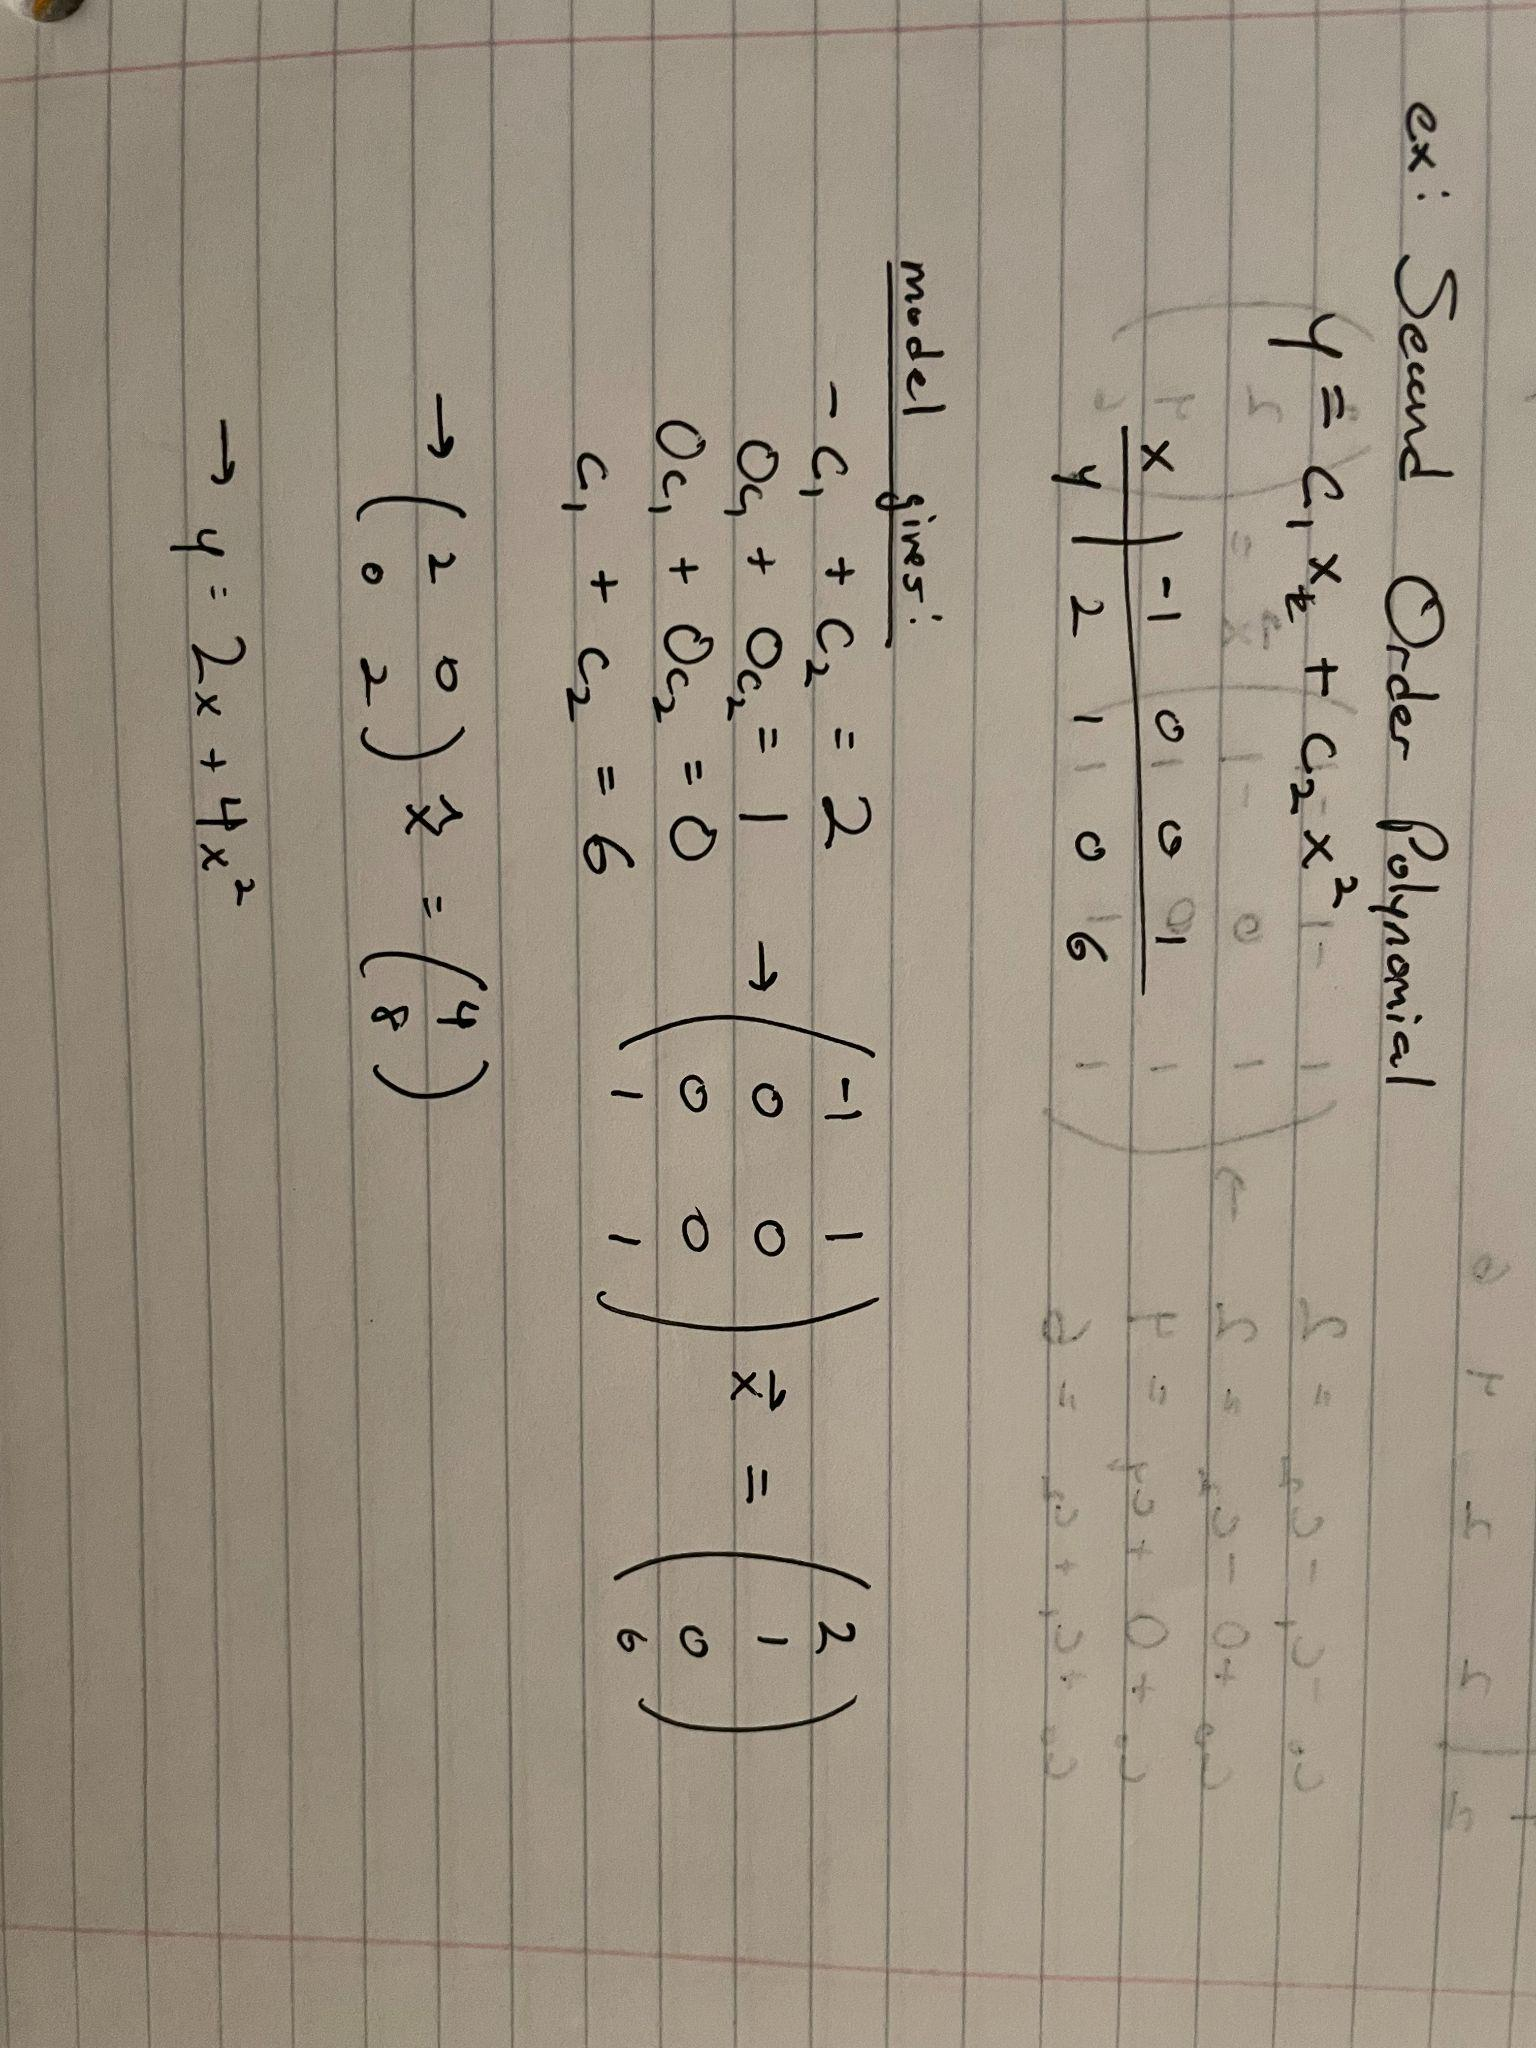 ex: Second Order Polynomial
y = c₁x + c₂x²
x | -1 0 0 1
y | 2 1 0 6
model gives:
-c₁ + c₂ = 2
0c₁ + 0c₂ = 1 → (-1 1; 0 0; 0 0; 1 1) x⃗ = (2; 1; 0; 6)
0c₁ + 0c₂ = 0
c₁ + c₂ = 6
→ (2 0; 0 2) x̂ = (4; 8)
→ y = 2x + 4x²